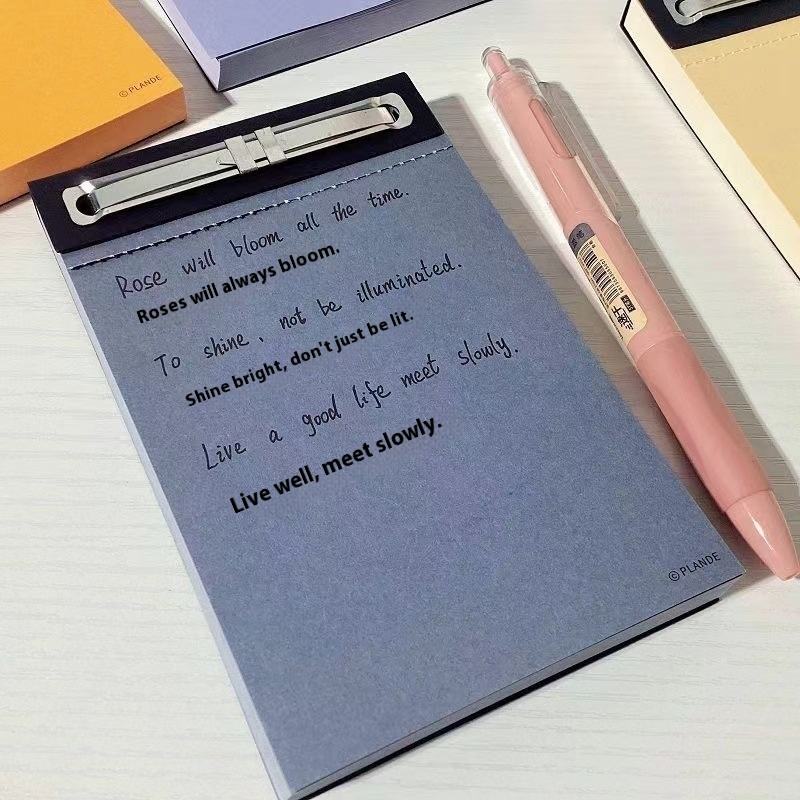 © PLANDE
Rose will bloom all the time.
Roses will always bloom.
To shine, not be illuminated.
Shine bright, don't just be lit.
Live a good life meet slowly.
Live well, meet slowly.
© PLANDE